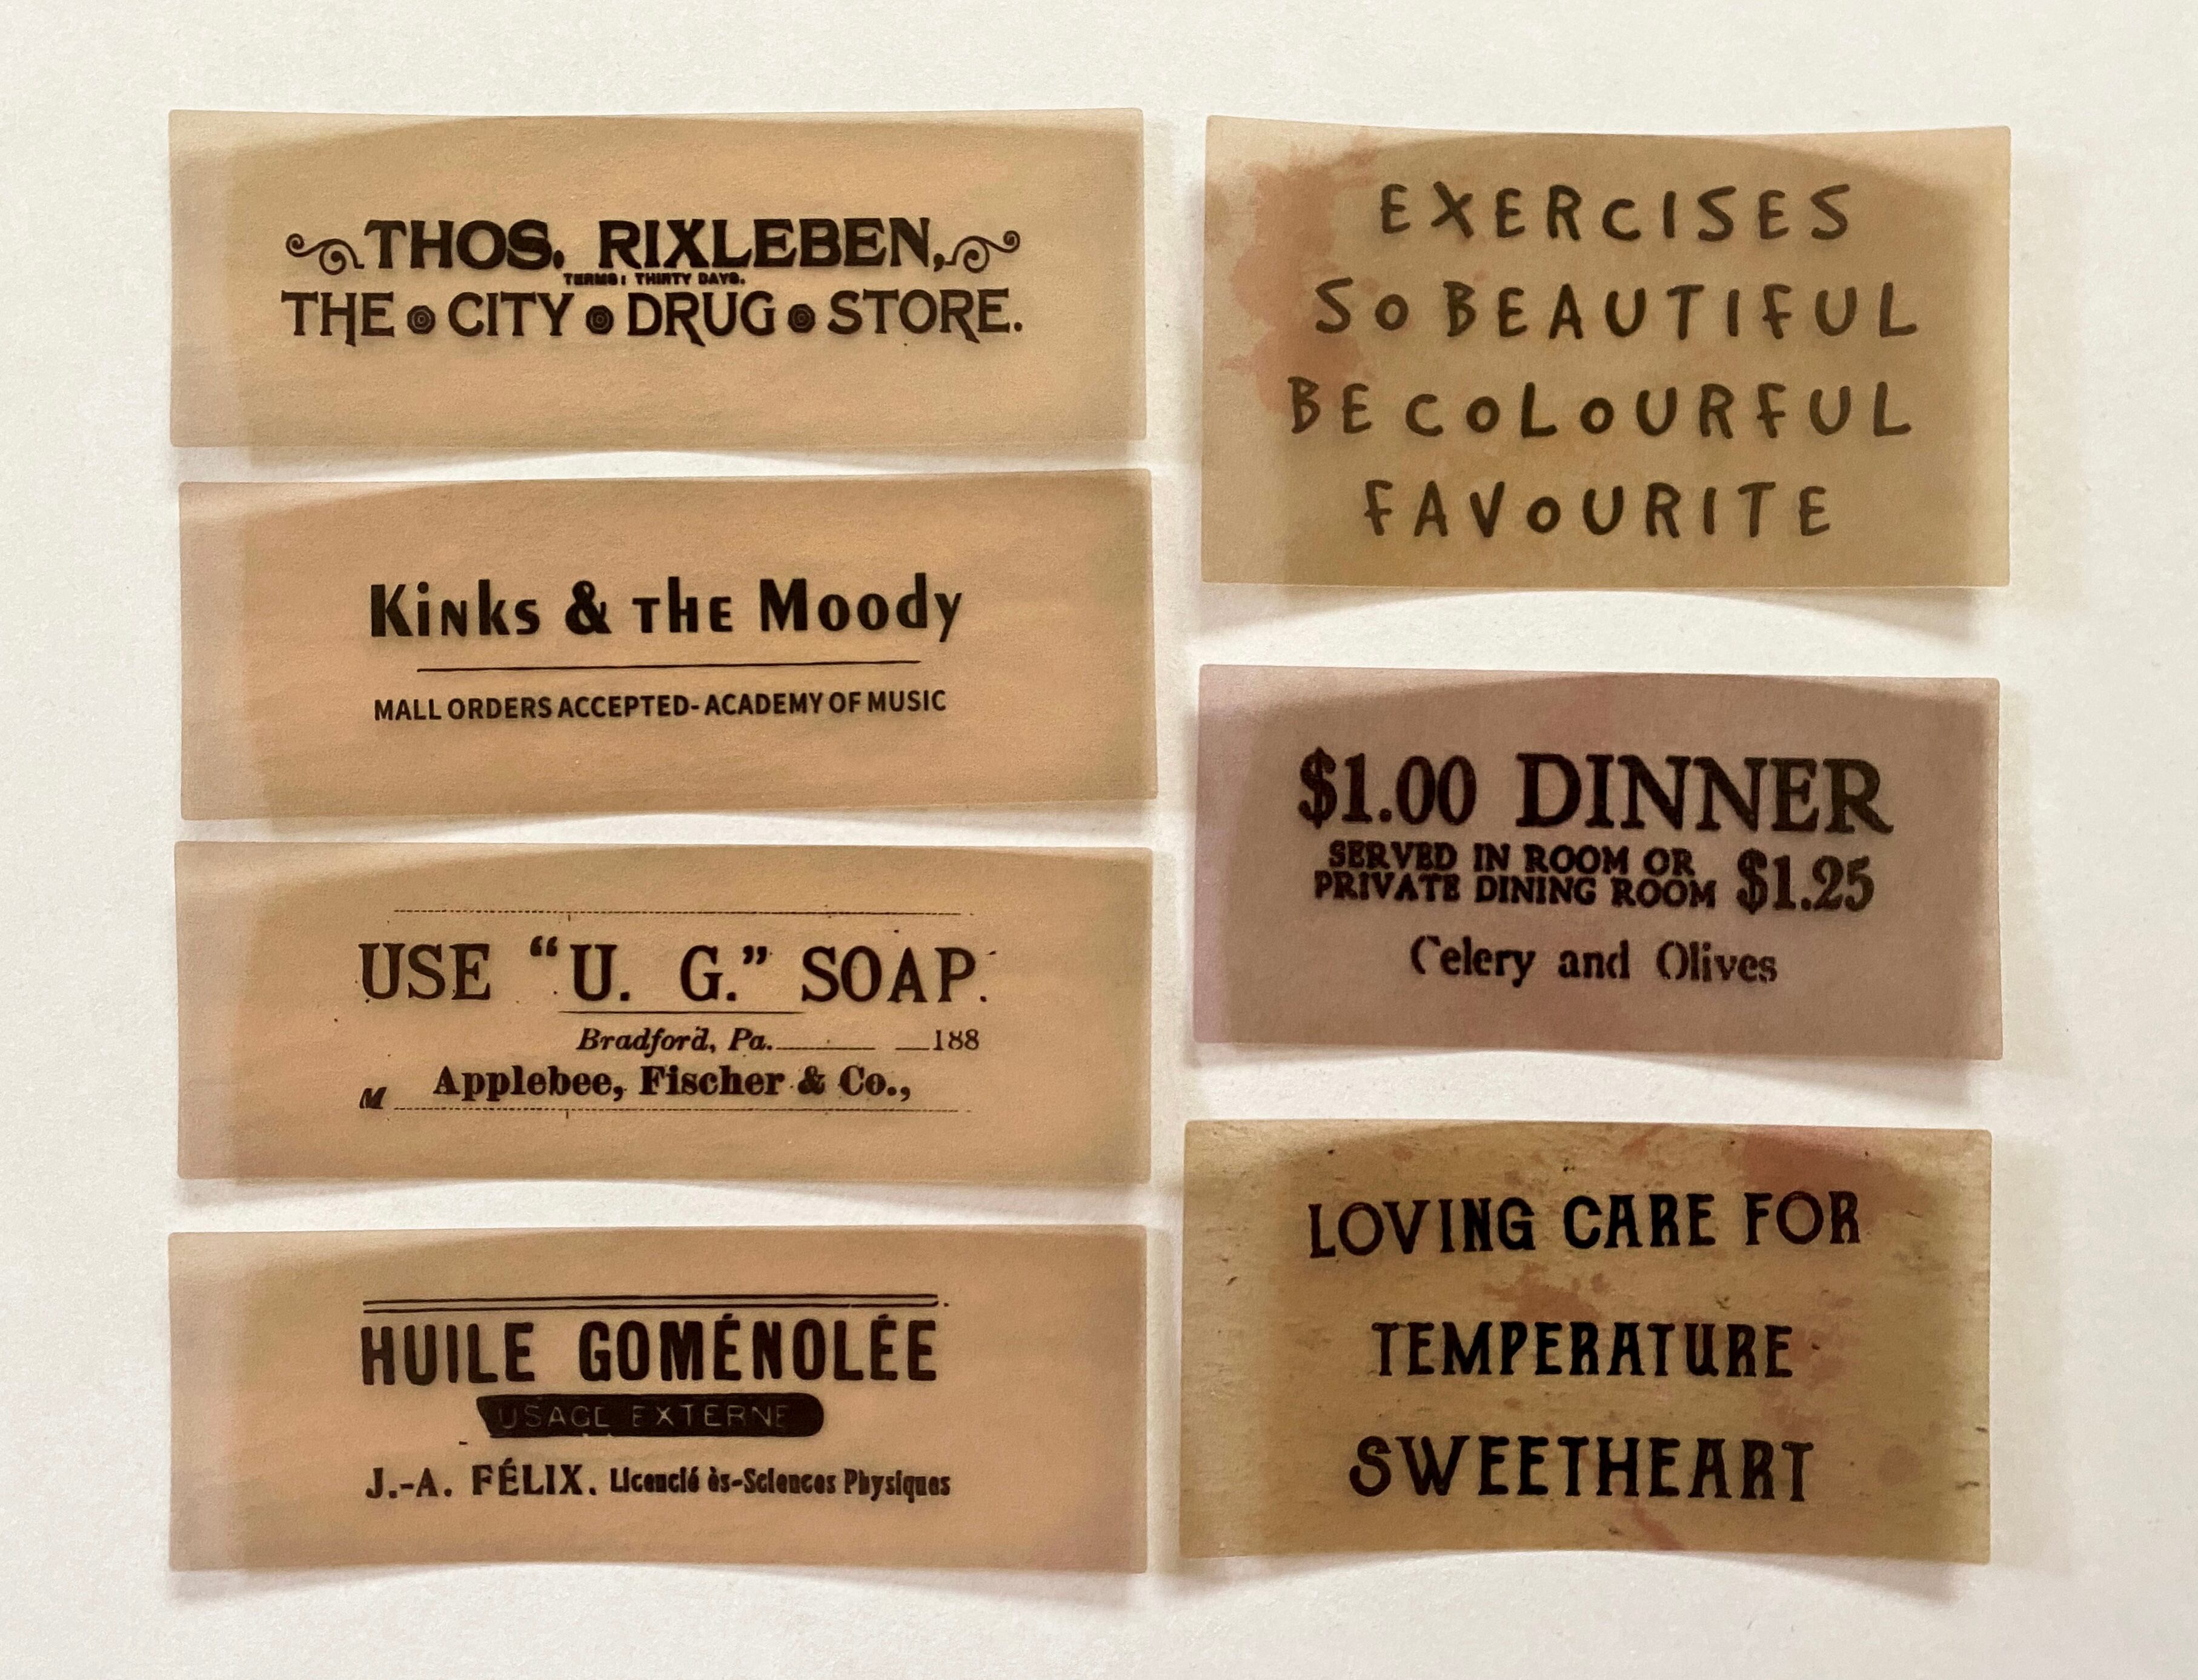 THOS. RIXLEBEN,
TERMS: THIRTY DAYS.
THE CITY DRUG STORE.
Kinks & the Moody
MALL ORDERS ACCEPTED-ACADEMY OF MUSIC
USE "U. G." SOAP.
Bradford, Pa. 188
Applebee, Fischer & Co.,
M
HUILE GOMÉNOLÉE
USAGE EXTERNE
J.-A. FÉLIX. Licencié ès-Sciences Physiques
EXERCISES
SO BEAUTIFUL
BE COLOURFUL
FAVOURITE
$1.00 DINNER
SERVED IN ROOM OR
PRIVATE DINING ROOM $1.25
Celery and Olives
LOVING CARE FOR
TEMPERATURE
SWEETHEART